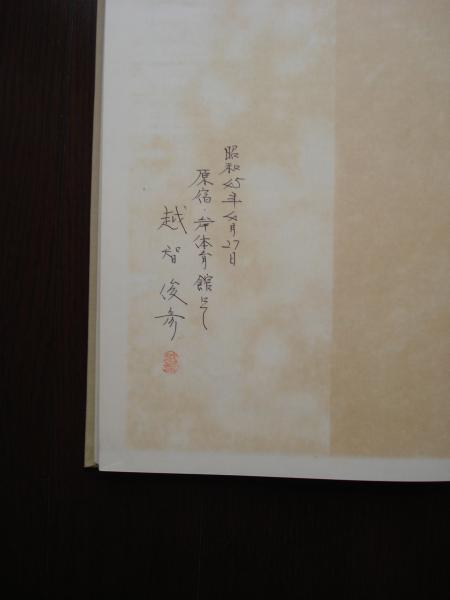 昭和45年4月27日
原宿・岸体育館にて
越智俊彦